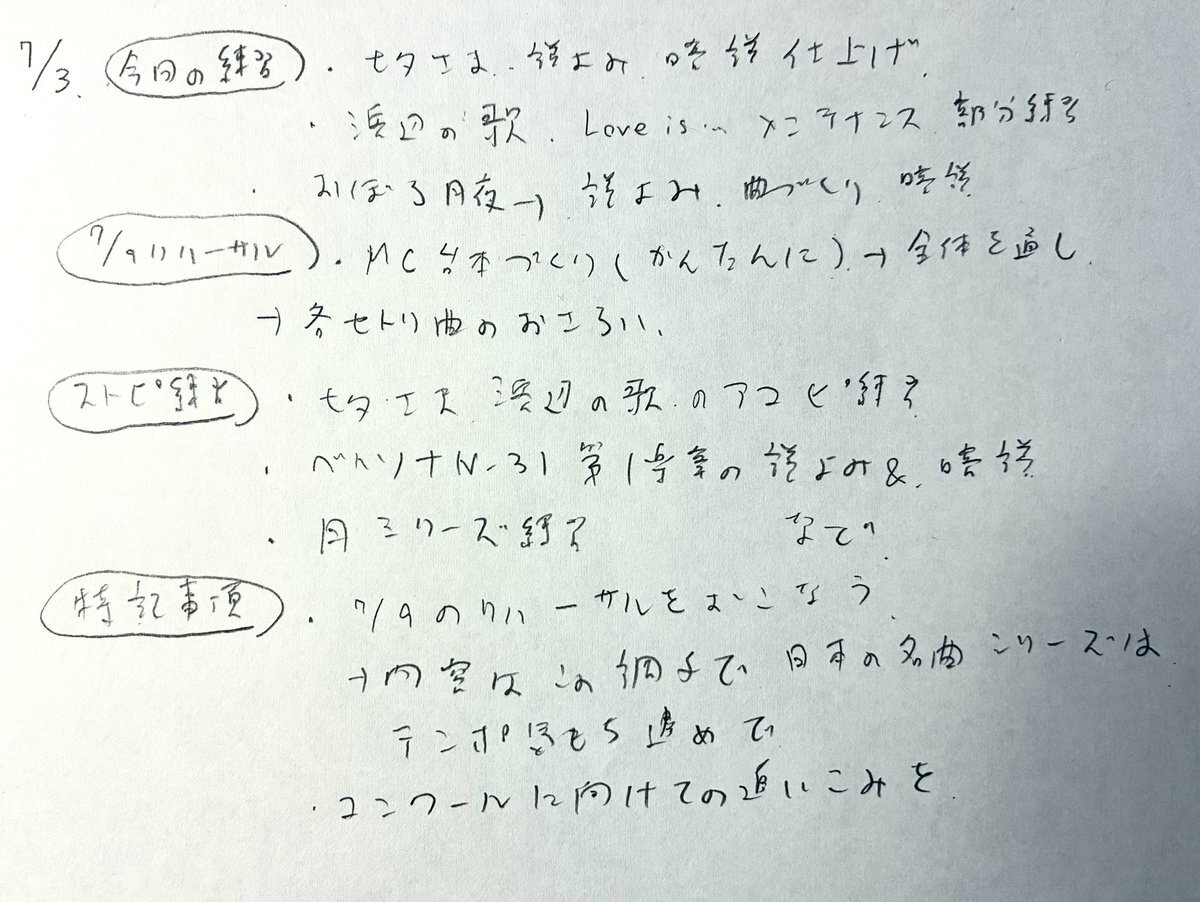 7/3. 今日の練習 ・七夕さま、譜よみ 暗譜 仕上げ
・浜辺の歌. Love is… メンテナンス 部分練習
・おぼろ月夜→ 譜よみ. 曲づくり 暗譜
7/9リハーサル ・MC台本づくり(かんたんに)→全体を通し
→各セトリ曲のおさらい、
ストピ練習 ・七夕さま 浜辺の歌のアコピ練習
・ベトソナN-31 第1楽章の譜よみ& 暗譜
・月シリーズ練習 など
特記事項 ・7/9のリハーサルをおこなう
→内容はこの調子で 日本の名曲シリーズは
テンポ 早めで
・コンクールに向けての追いこみを